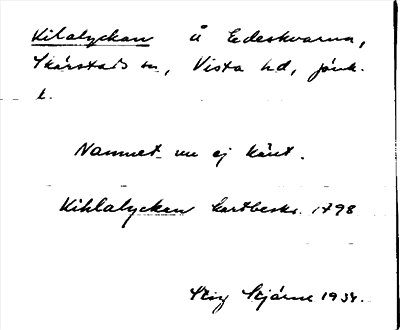 Kilalyckan å Edeskvarna,
Skärstads sn, Vista hd, Jönk.
l.
Namnet nu ej känt.
Kihlalyckan kartbeskr. 1798
Stig Stjärne 1934.